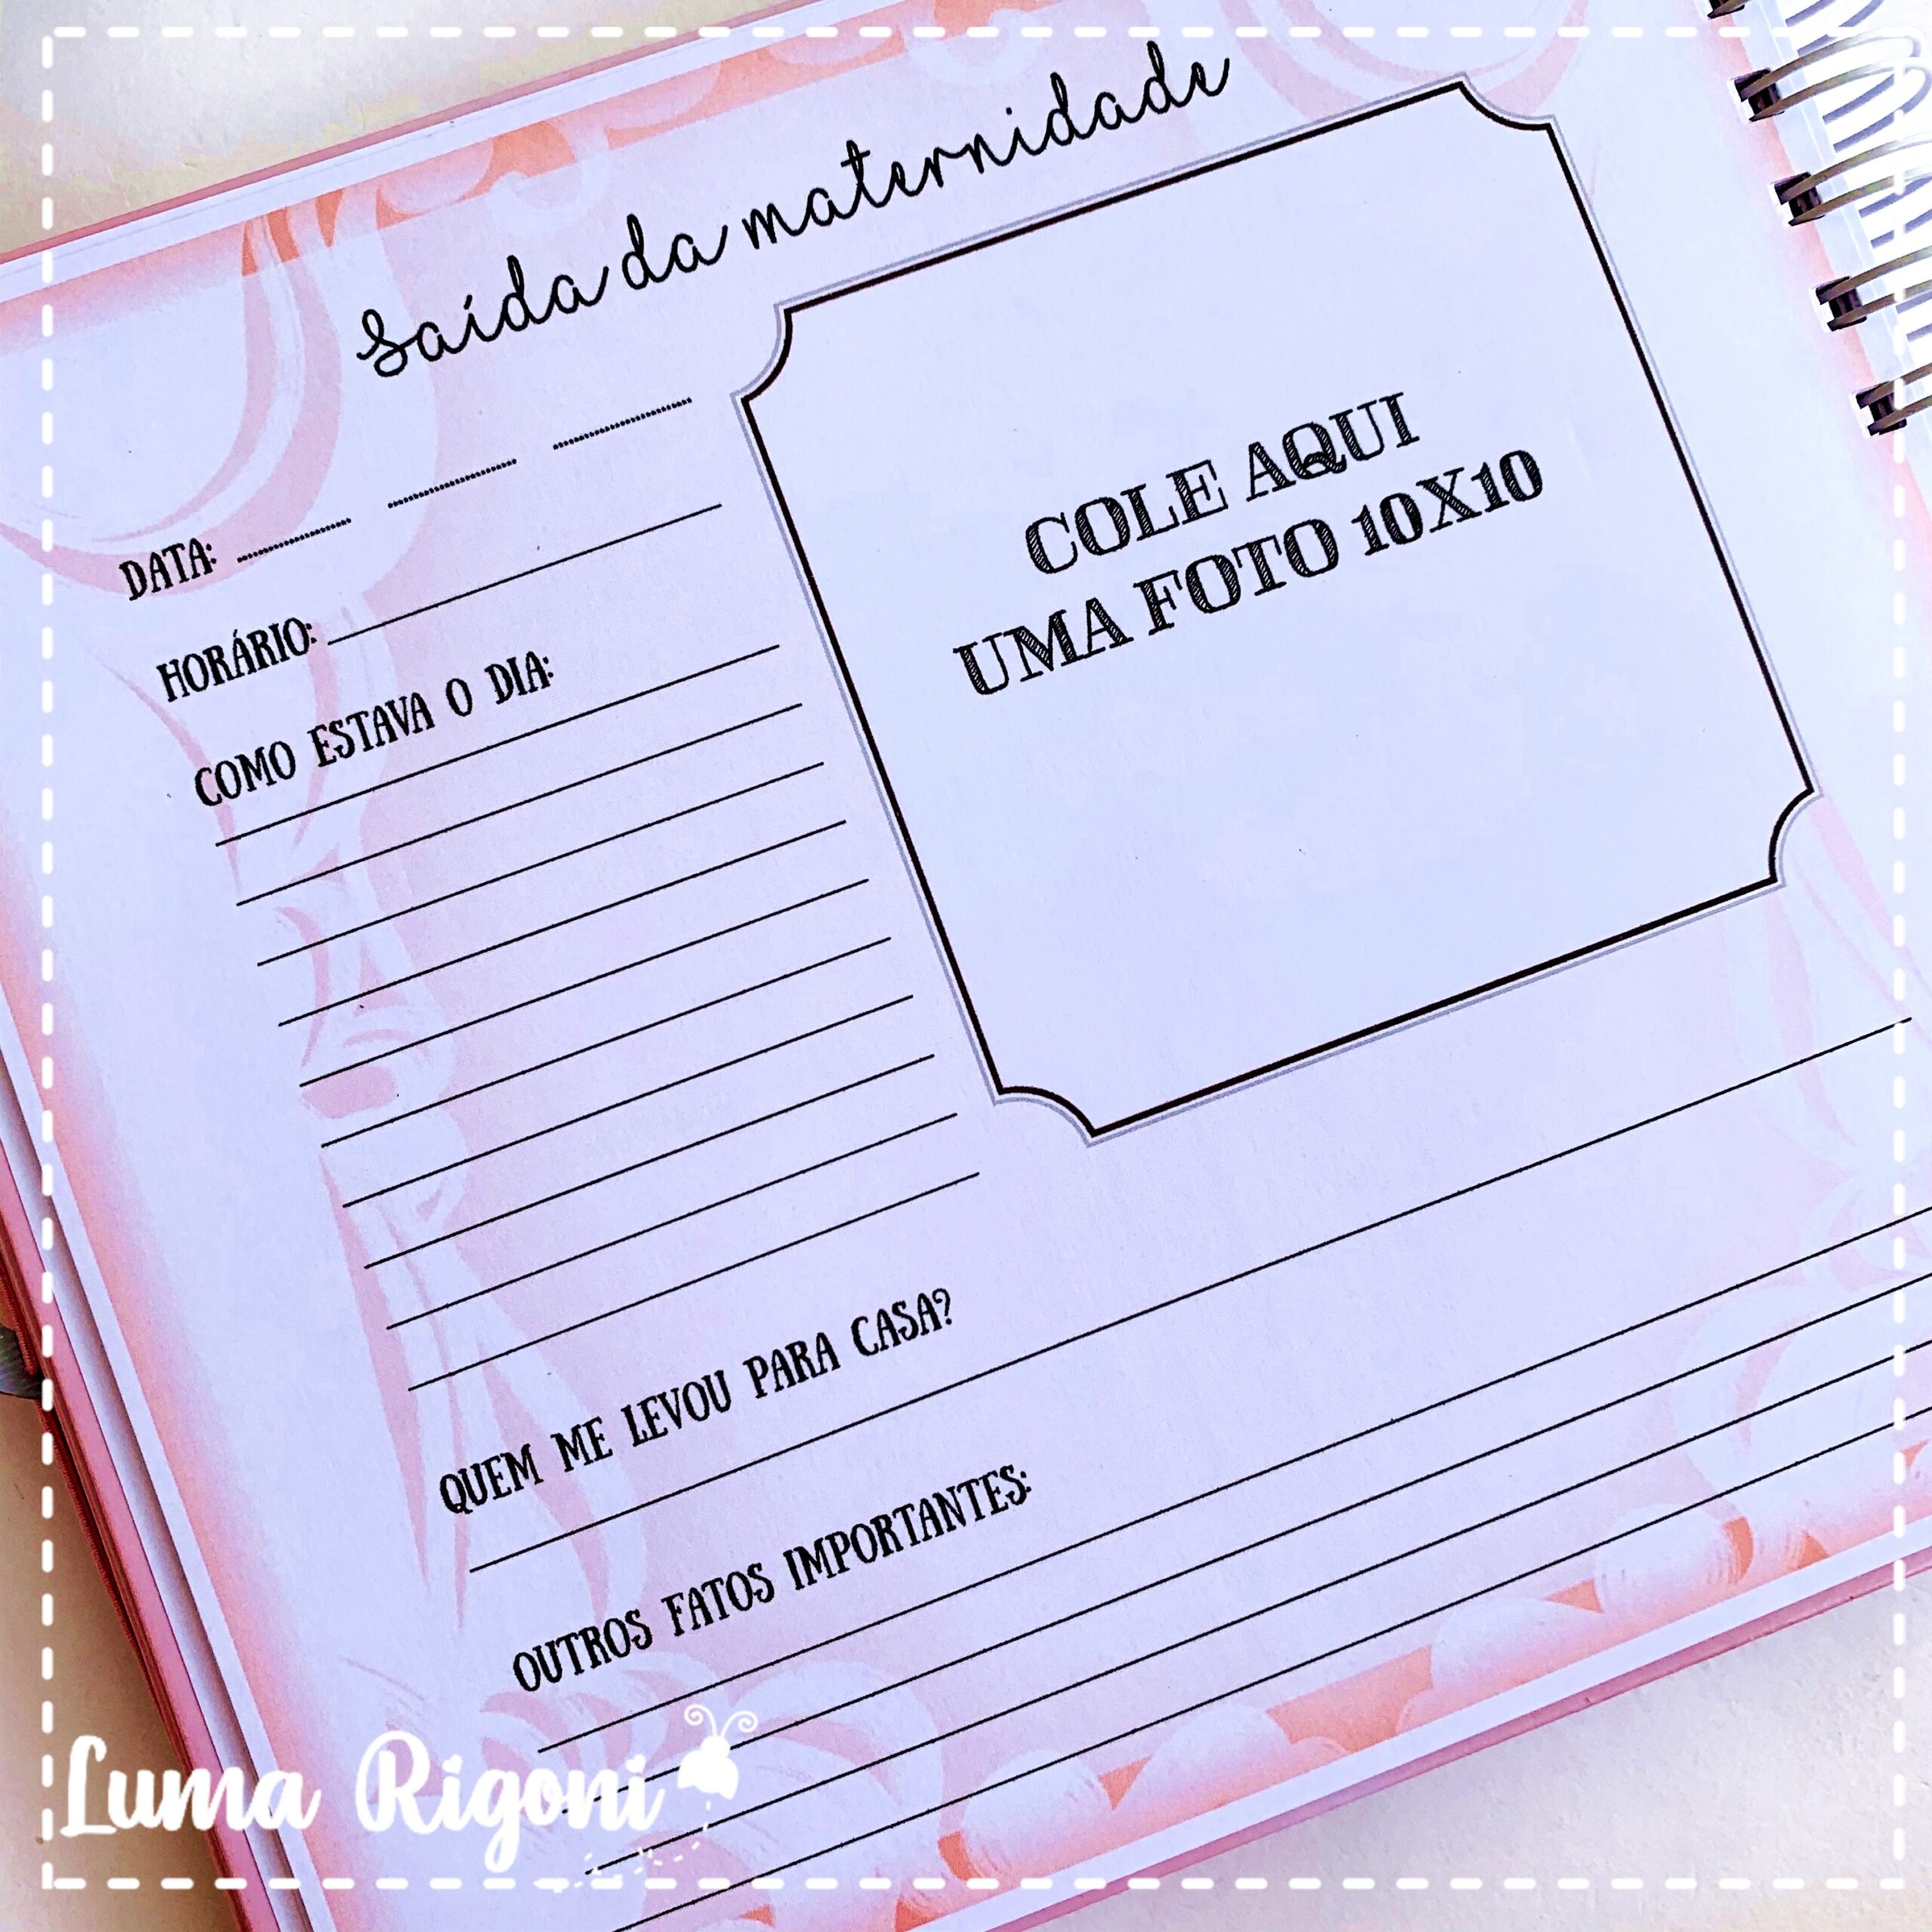 Saída da maternidade
DATA:
HORÁRIO:
COMO ESTAVA O DIA:
COLE AQUI
UMA FOTO 10X10
QUEM ME LEVOU PARA CASA?
OUTROS FATOS IMPORTANTES:
Luma Rigoni